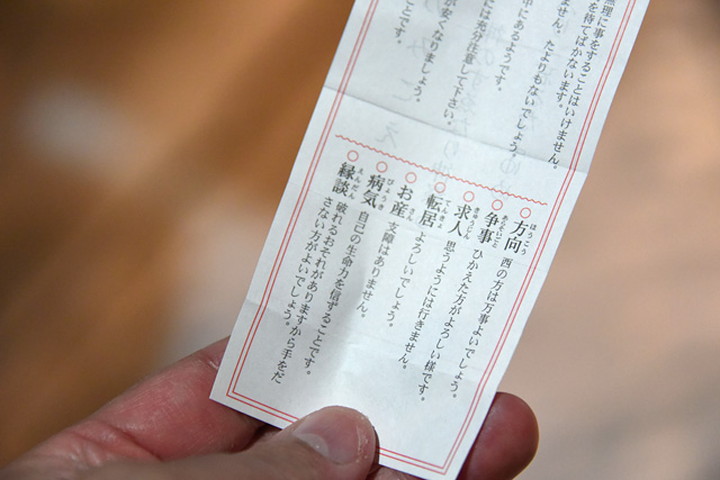 無理に事をすることはいけません。
を待てばかないます。
ません。たよりもないでしょう。
中にあるようです。
には充分注意して下さい。
が安くなりましょう。
ことです。
方向 西の方は万事よいでしょう。
争事 ひかえた方がよろしい様です。
求人 思うようには行きません。
転居 よろしいでしょう。
お産 支障はありません。
病気 自己の生命力を信ずることです。
縁談 破れるおそれがありますから手をだ
さない方がよいでしょう。